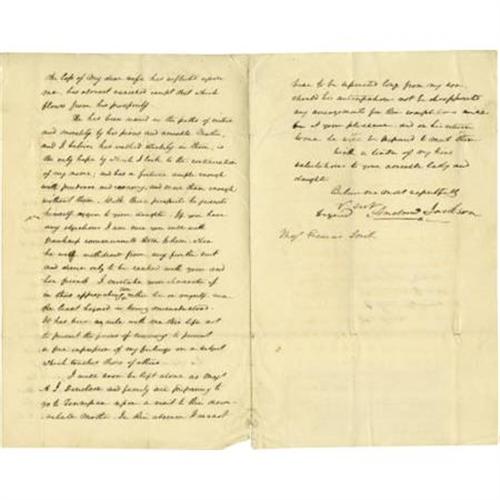 the loss of my dear wife has inflicted upon
me, has almost exhausted except that which
flows from his prosperity
He has been reared in the paths of virtue
and morality by his pious and amiable Mother,
and I believe has walked steadily in them, is
the only hope by which I look to the continuation
of my name; and has a fortune ample enough
with prudence and economy, and more than enough
without them. With these prospects he presents
himself again to your daughter. If you have
any objections I am one you will with
frankness communicate them to him. Then
he will withdraw from any further suit
and desire only to be ranked with you and
her friends. I mistake your character if
in this either he or myself run
the least hazard in being misunderstood.
It has been a rule with me thro life not
to permit the of to prevent
a free expression of my feelings on a subject
which touches those of others.
I will soon be left alone as Majr
A. J. Donelson and family are preparing to
go to Tennessee upon a visit to his
Mother. In their absence I cannot
bear to be separated long from my son,
should his anticipations not be disappointed
any arrangements for the completion made
be at your pleasure, and on his return
home he will be prepared to meet them
with a tender of my kind
salutations to your amiable lady and
daughter
Believe me most respectfully
Your
Servant Andrew Jackson
Majr Francis Smith